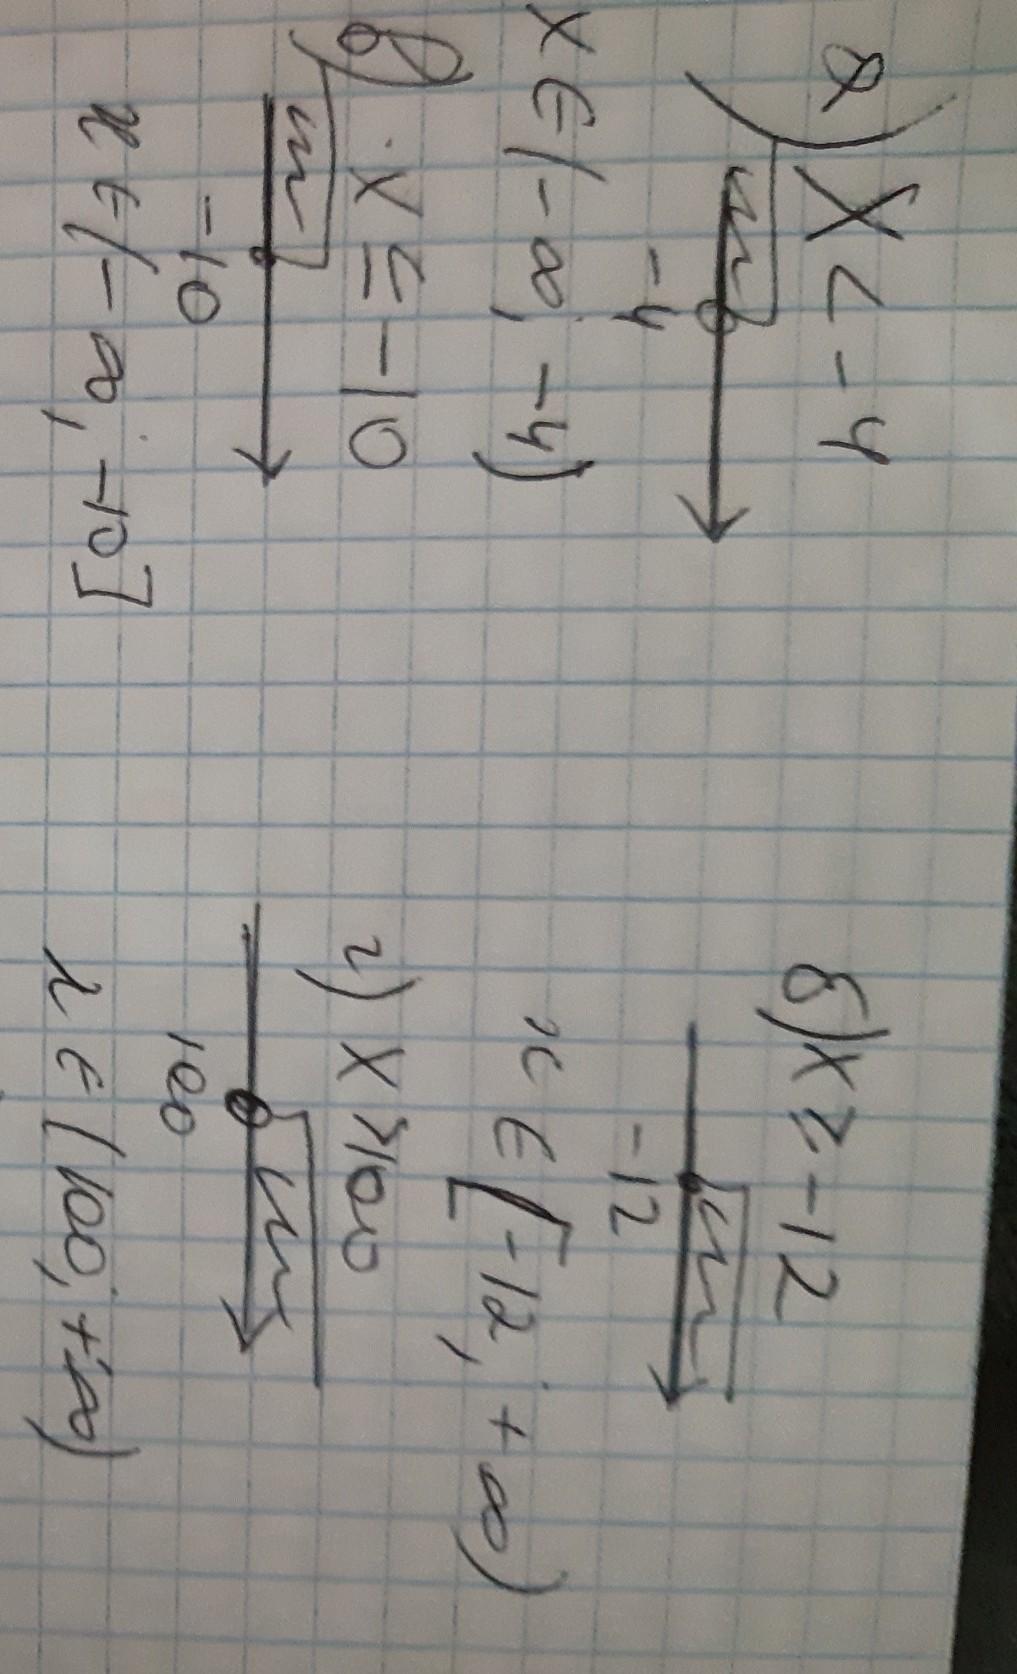 а) X < -4
-4
x ∈ (-∞; -4)
б) x ≥ -12
-12
x ∈ [-12; +∞)
в) x ≤ -10
-10
x ∈ (-∞; -10]
г) x > 100
100
x ∈ (100; +∞)